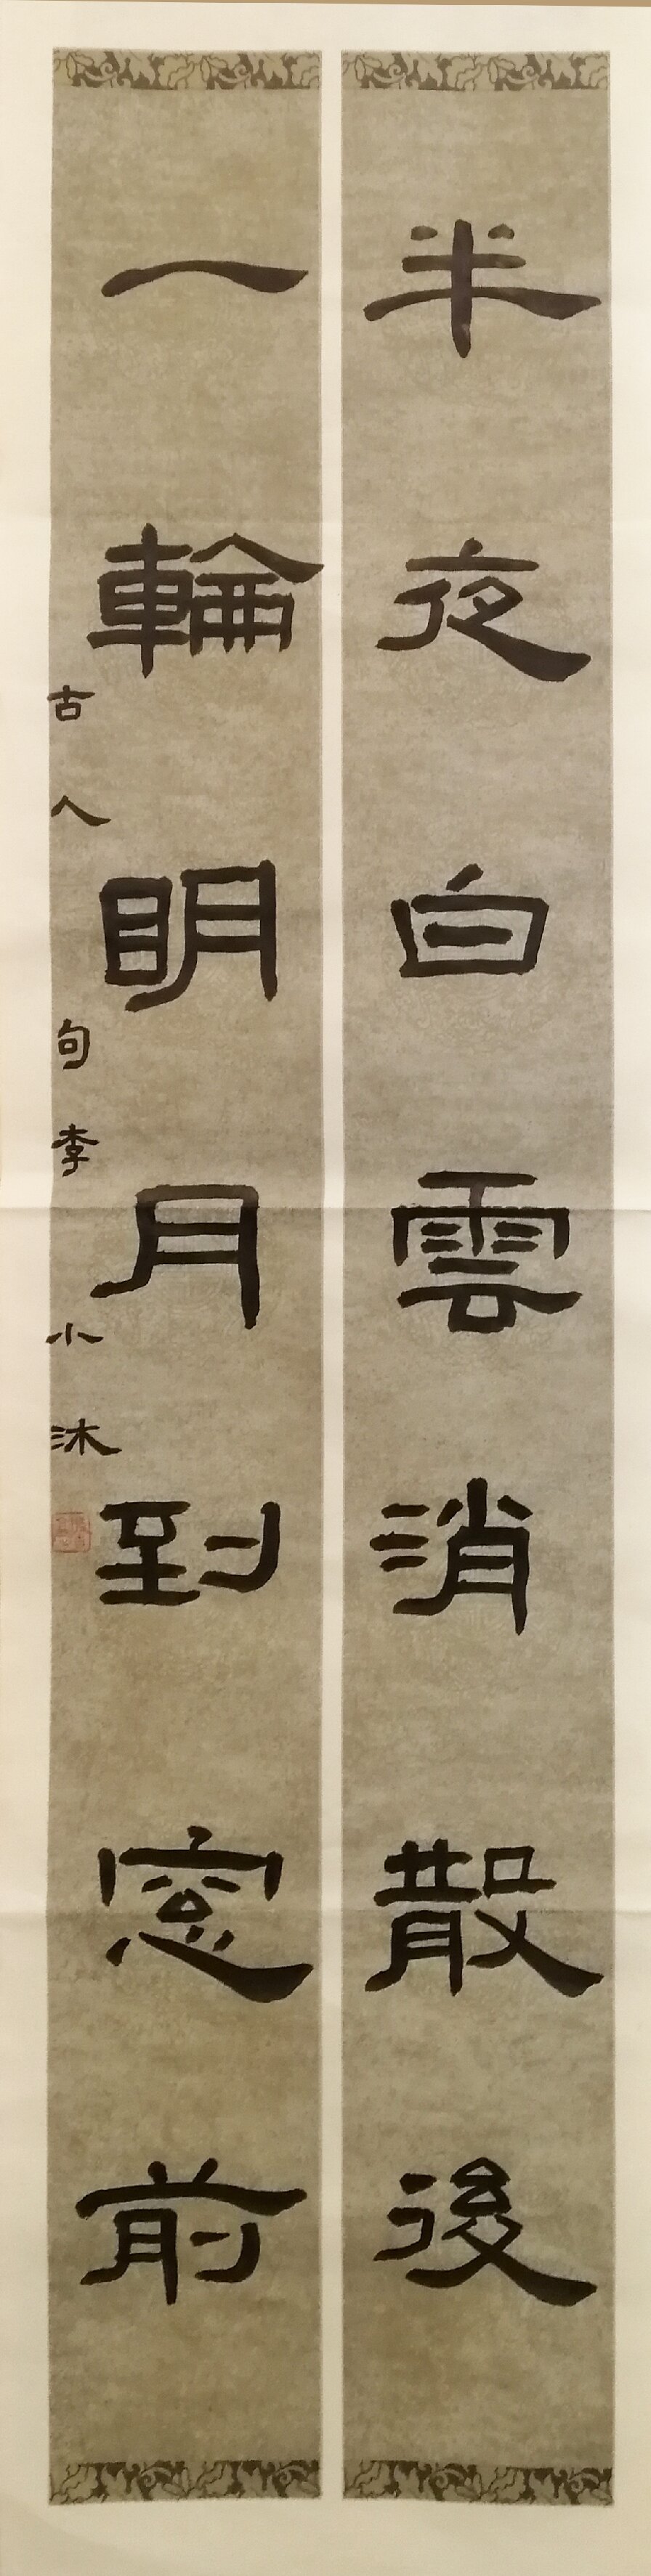 半夜白雲消散後
一輪眀月到窓前
古人句李小沐